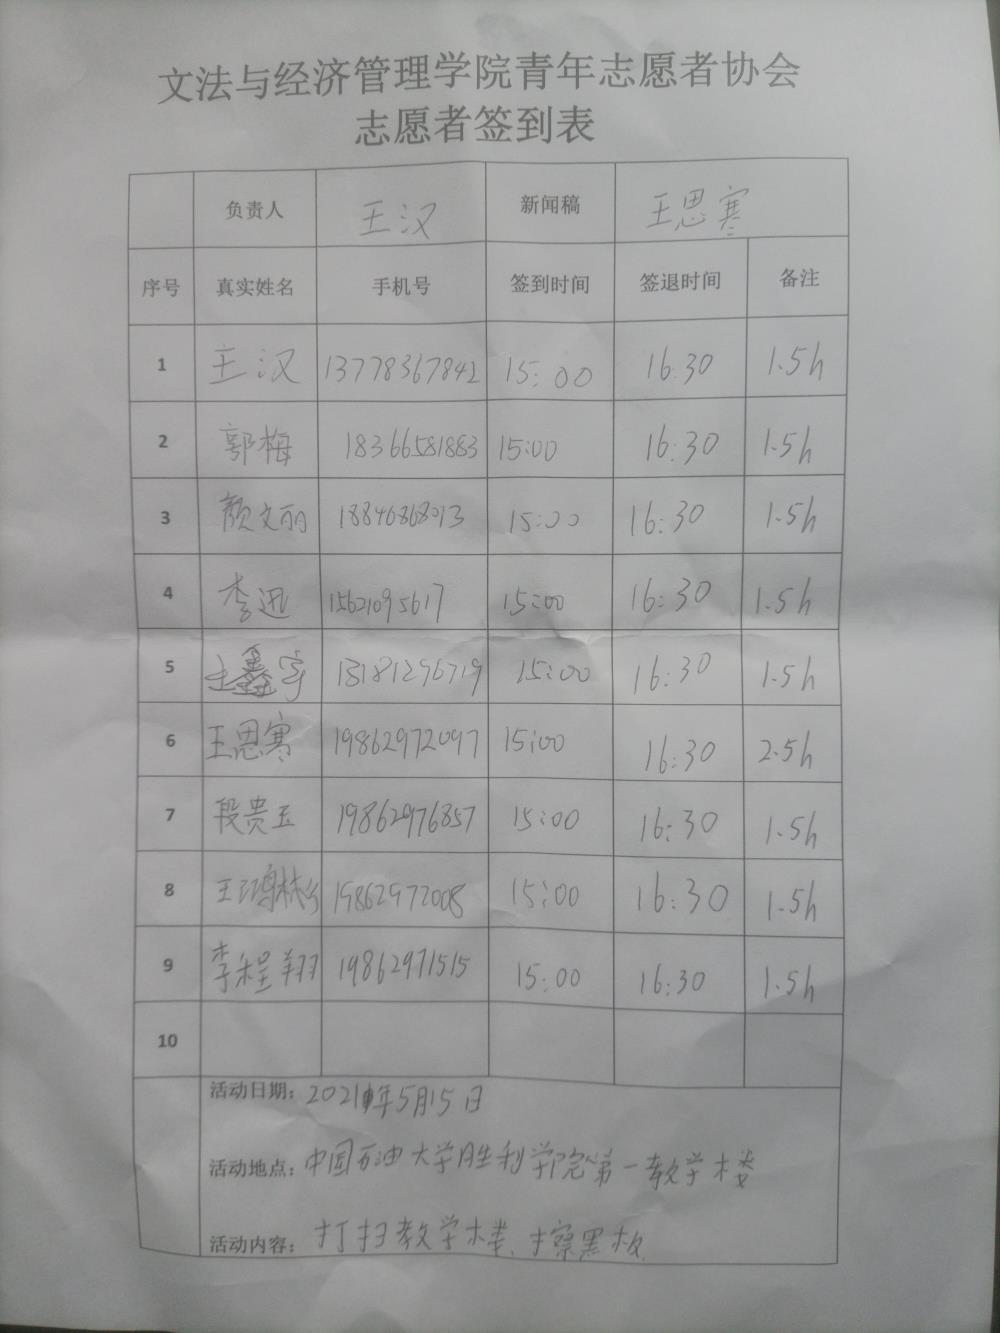 文法与经济管理学院青年志愿者协会
志愿者签到表
负责人 王汉 新闻稿 王思寒
序号 真实姓名 手机号 签到时间 签退时间 备注
1 王汉 13778367842 15:00 16:30 1.5h
2 郭梅 18366581883 15:00 16:30 1.5h
3 颜文丽 18846868013 15:00 16:30 1.5h
4 李迅 15621095617 15:00 16:30 1.5h
5 王鑫宇 13181296719 15:00 16:30 1.5h
6 王思寒 19862972097 15:00 16:30 2.5h
7 段贵玉 19862976857 15:00 16:30 1.5h
8 王鸿彬 19862972008 15:00 16:30 1.5h
9 李程翔 19862971515 15:00 16:30 1.5h
10
活动日期：2021年5月15日
活动地点：中国石油大学胜利学院第一教学楼
活动内容：打扫教学楼、擦黑板